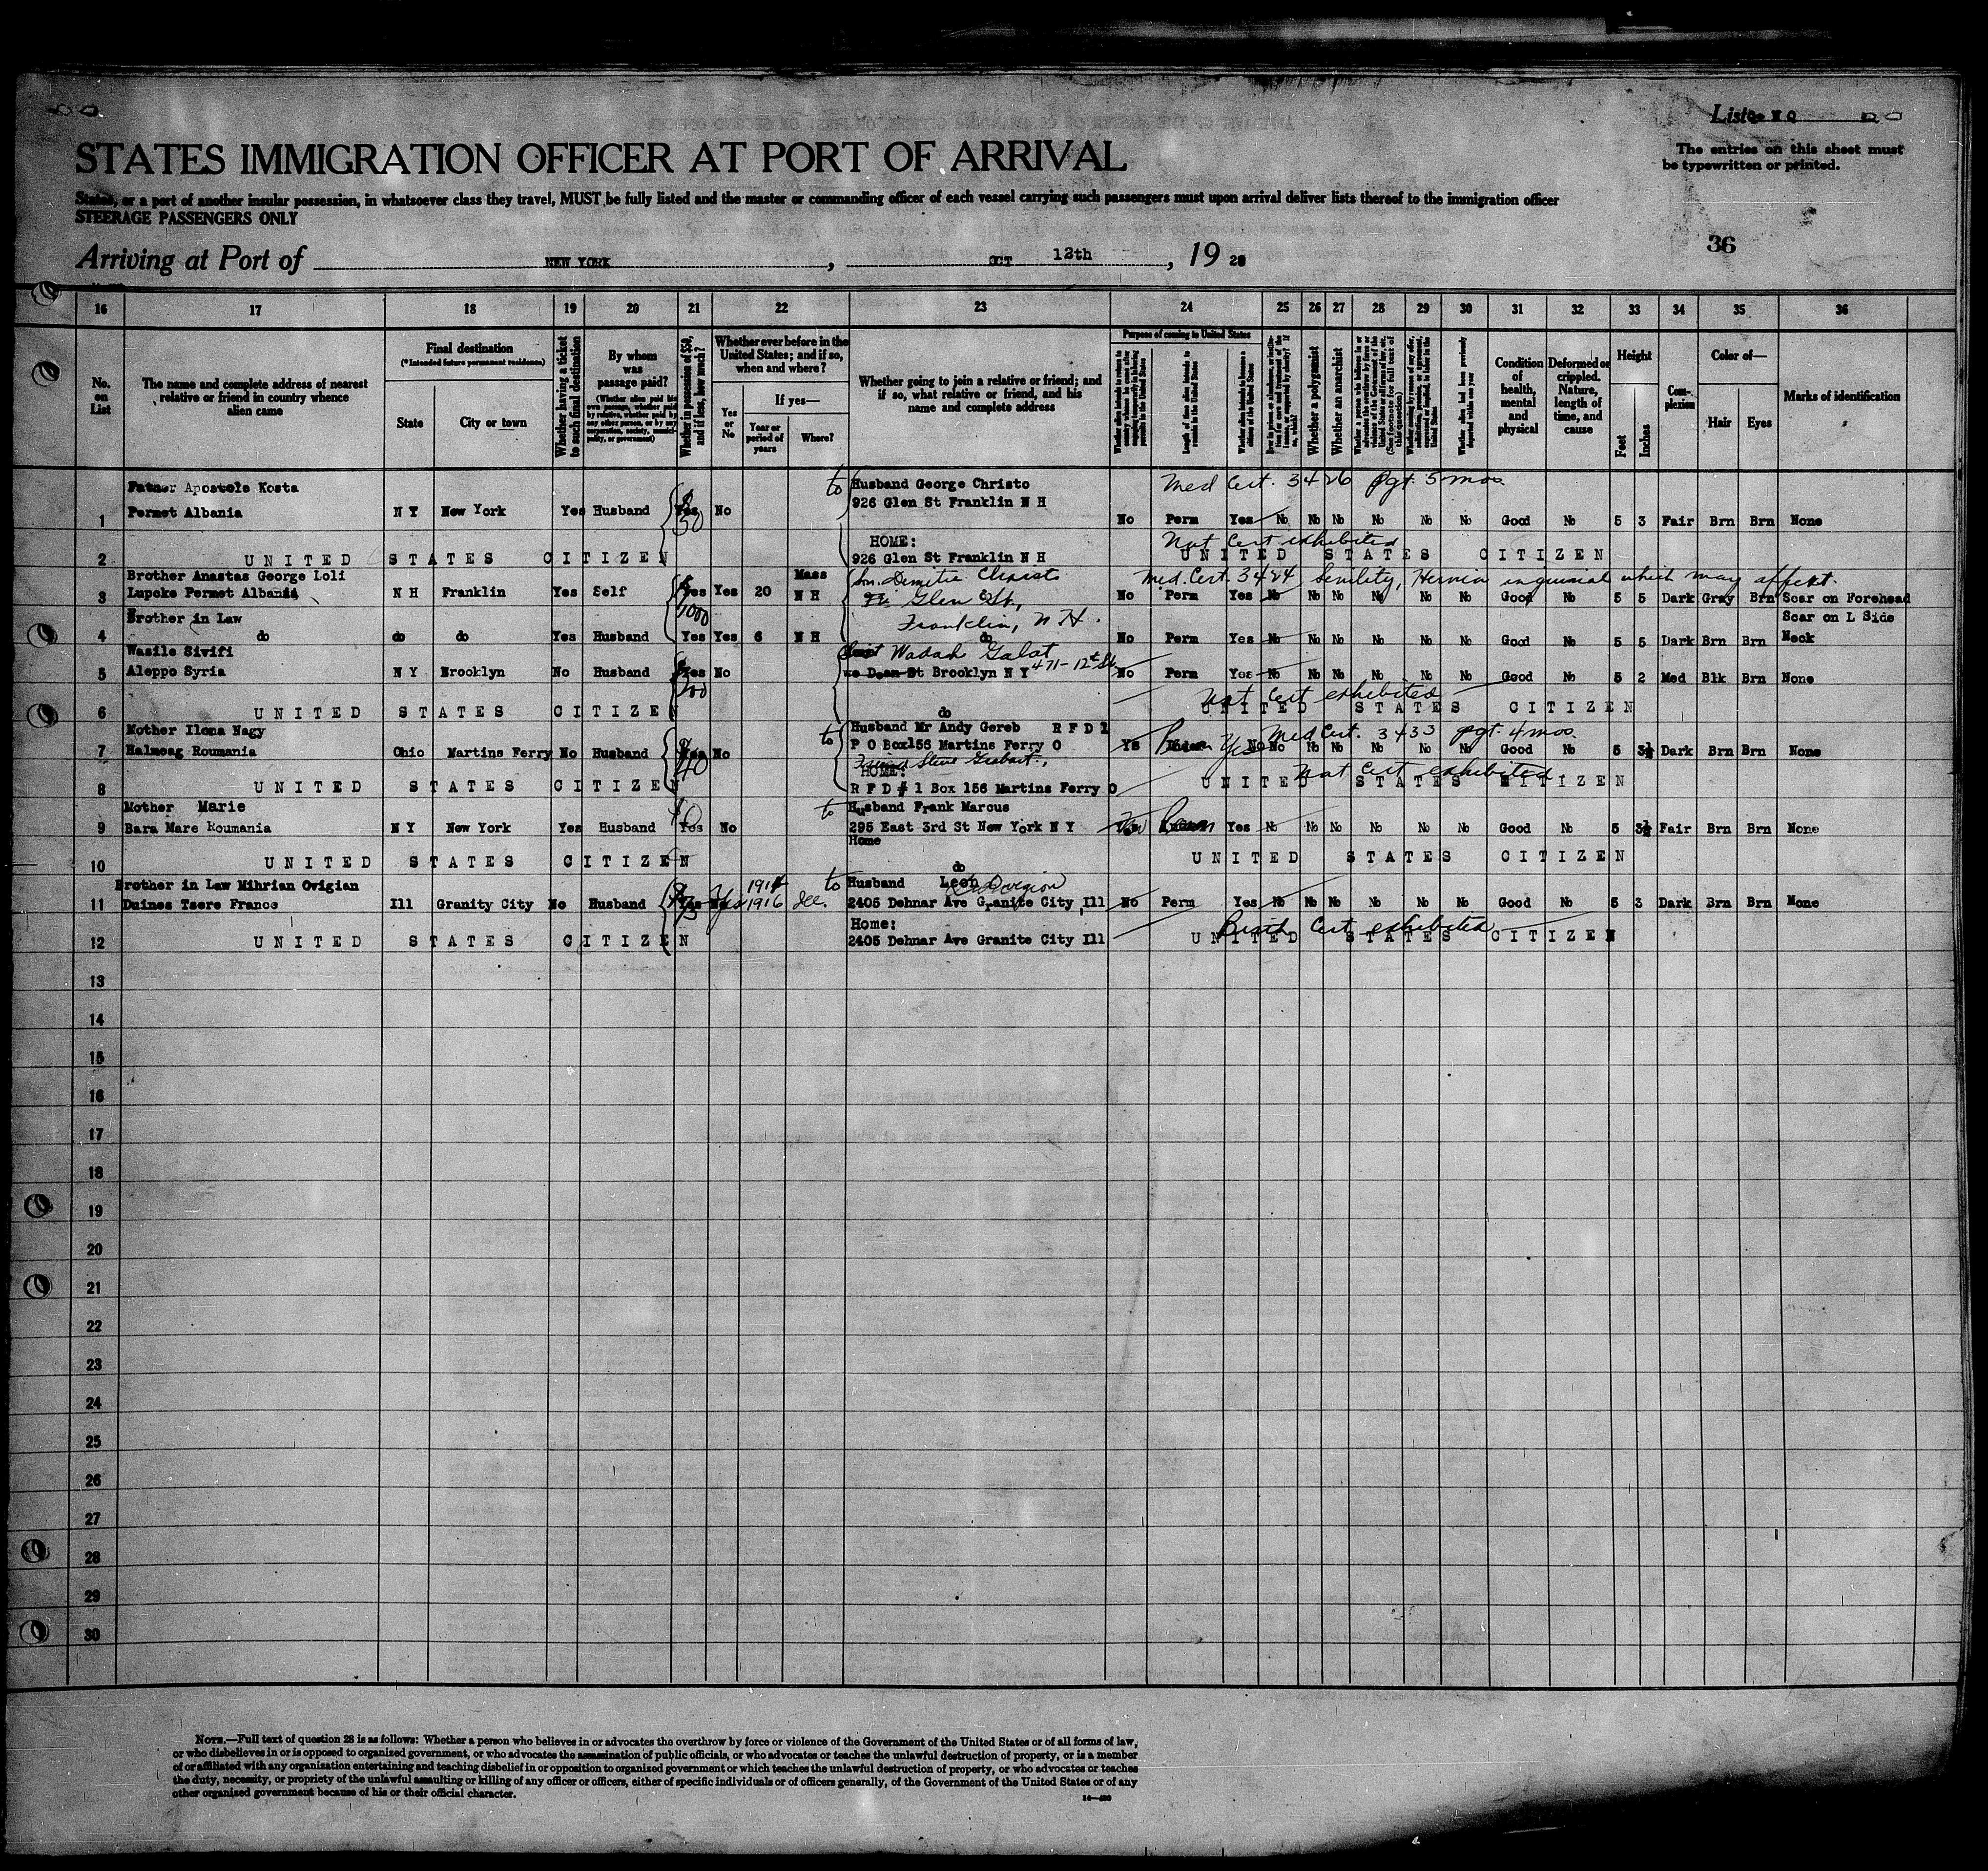 List No
The entries on this sheet must
be typewritten or printed.
STATES IMMIGRATION OFFICER AT PORT OF ARRIVAL
States, or a port of another insular possession, in whatsoever class they travel, MUST be fully listed and the master or commanding officer of each vessel carrying such passengers must upon arrival deliver lists thereof to the immigration officer
STEERAGE PASSENGERS ONLY
36
Arriving at Port of NEW YORK, OCT 12th, 19 28
16 17 18 19 20 21 22 23 24 25 26 27 28 29 30 31 32 33 34 35 36
No. on List
The name and complete address of nearest relative or friend in country whence alien came
Final destination
(*Intended future permanent residence)
State
City or town
Whether having a ticket to such final destination
By whom was passage paid?
(Whether alien paid his own passage, whether paid by relative, whether paid by any other person, or by any corporation, society, municipality, or government)
Whether in possession of $50, and if less, how much?
Whether ever before in the United States; and if so, when and where?
Yes or No
If yes—
Year or period of years
Where?
Whether going to join a relative or friend; and if so, what relative or friend, and his name and complete address
Purpose of coming to United States
Whether alien intends to return to country whence he came after engaging temporarily in laboring pursuits in the United States
Length of time alien intends to remain in the United States
Whether alien intends to become a citizen of the United States
Whether a polygamist
Whether an anarchist
Whether alien had been previously deported within one year
Condition of health, mental and physical
Deformed or crippled. Nature, length of time, and cause
Height
Feet
Inches
Complexion
Color of—
Hair
Eyes
Marks of identification
Father Apostole Kosta to Husband George Christo Med Cert. 3426 Pgt. 5 mos.
926 Glen St Franklin N H
1 Permet Albania N Y New York Yes Husband Yes 50 No No Perm Yes No No No No No No Good No 5 3 Fair Brn Brn None
HOME: Nat Cert exhibited
2 UNITED STATES CITIZEN 926 Glen St Franklin N H UNITED STATES CITIZEN
Brother Anastas George Loli Mass Son. Demetre Christo Med. Cert. 3424 Senility, Hernia inguinal which may affect.
3 Lupoke Permet Albania N H Franklin Yes Self Yes 1000 Yes 20 N H Glen St, No Perm Yes No No No No No No Good No 5 5 Dark Gray Brn Scar on Forehead
Brother in Law Franklin, N H. Scar on L Side
4 do do do Yes Husband Yes Yes 6 N H do No Perm Yes No No No No No No Good No 5 5 Dark Brn Brn Neck
Wasile Sivifi Wadah Galat 471-12th St
5 Aleppo Syria N Y Brooklyn No Husband Yes 200 No Dean St Brooklyn N Y No Perm Yes No No No No No No Good No 5 2 Med Blk Brn None
Nat Cert exhibited
6 UNITED STATES CITIZEN do UNITED STATES CITIZEN
Mother Ilona Nagy to Husband Mr Andy Gereb R F D 1 Med Cert. 3433 pgt. 4 mos.
7 Halmeag Roumania Ohio Martins Ferry No Husband Yes 40 No P O Box156 Martins Ferry O Ys Perm Yes No No No No No No No Good No 5 3½ Dark Brn Brn None
Friend Steve
HOME: Nat Cert exhibited
8 UNITED STATES CITIZEN R F D # 1 Box 156 Martins Ferry O UNITED STATES CITIZEN
Mother Marie to Husband Frank Marcus
9 Bara Mare Roumania N Y New York Yes Husband Yes No 295 East 3rd St New York N Y No Perm Yes No No No No No No Good No 5 3½ Fair Brn Brn None
Home
10 UNITED STATES CITIZEN do UNITED STATES CITIZEN
Brother in Law Mihrian Ovigian 1914 to Husband Leon
11 Duines Tsere France Ill Granity City No Husband Yes Yes 1916 Ill. 2405 Dehnar Ave Granite City Ill No Perm Yes No No No No No No Good No 5 3 Dark Brn Brn None
Home: Birth Cert exhibited
12 UNITED STATES CITIZEN 2405 Dehnar Ave Granite City Ill UNITED STATES CITIZEN
13
14
15
16
17
18
19
20
21
22
23
24
25
26
27
28
29
30
NOTE.—Full text of question 28 is as follows: Whether a person who believes in or advocates the overthrow by force or violence of the Government of the United States or of all forms of law,
or who disbelieves in or is opposed to organized government, or who advocates the assassination of public officials, or who advocates or teaches the unlawful destruction of property, or is a member
of or affiliated with any organization entertaining and teaching disbelief in or opposition to organized government or which teaches the unlawful destruction of property, or who advocates or teaches
the duty, necessity, or propriety of the unlawful assaulting or killing of any officer or officers, either of specific individuals or of officers generally, of the Government of the United States or of any
other organized government because of his or their official character.